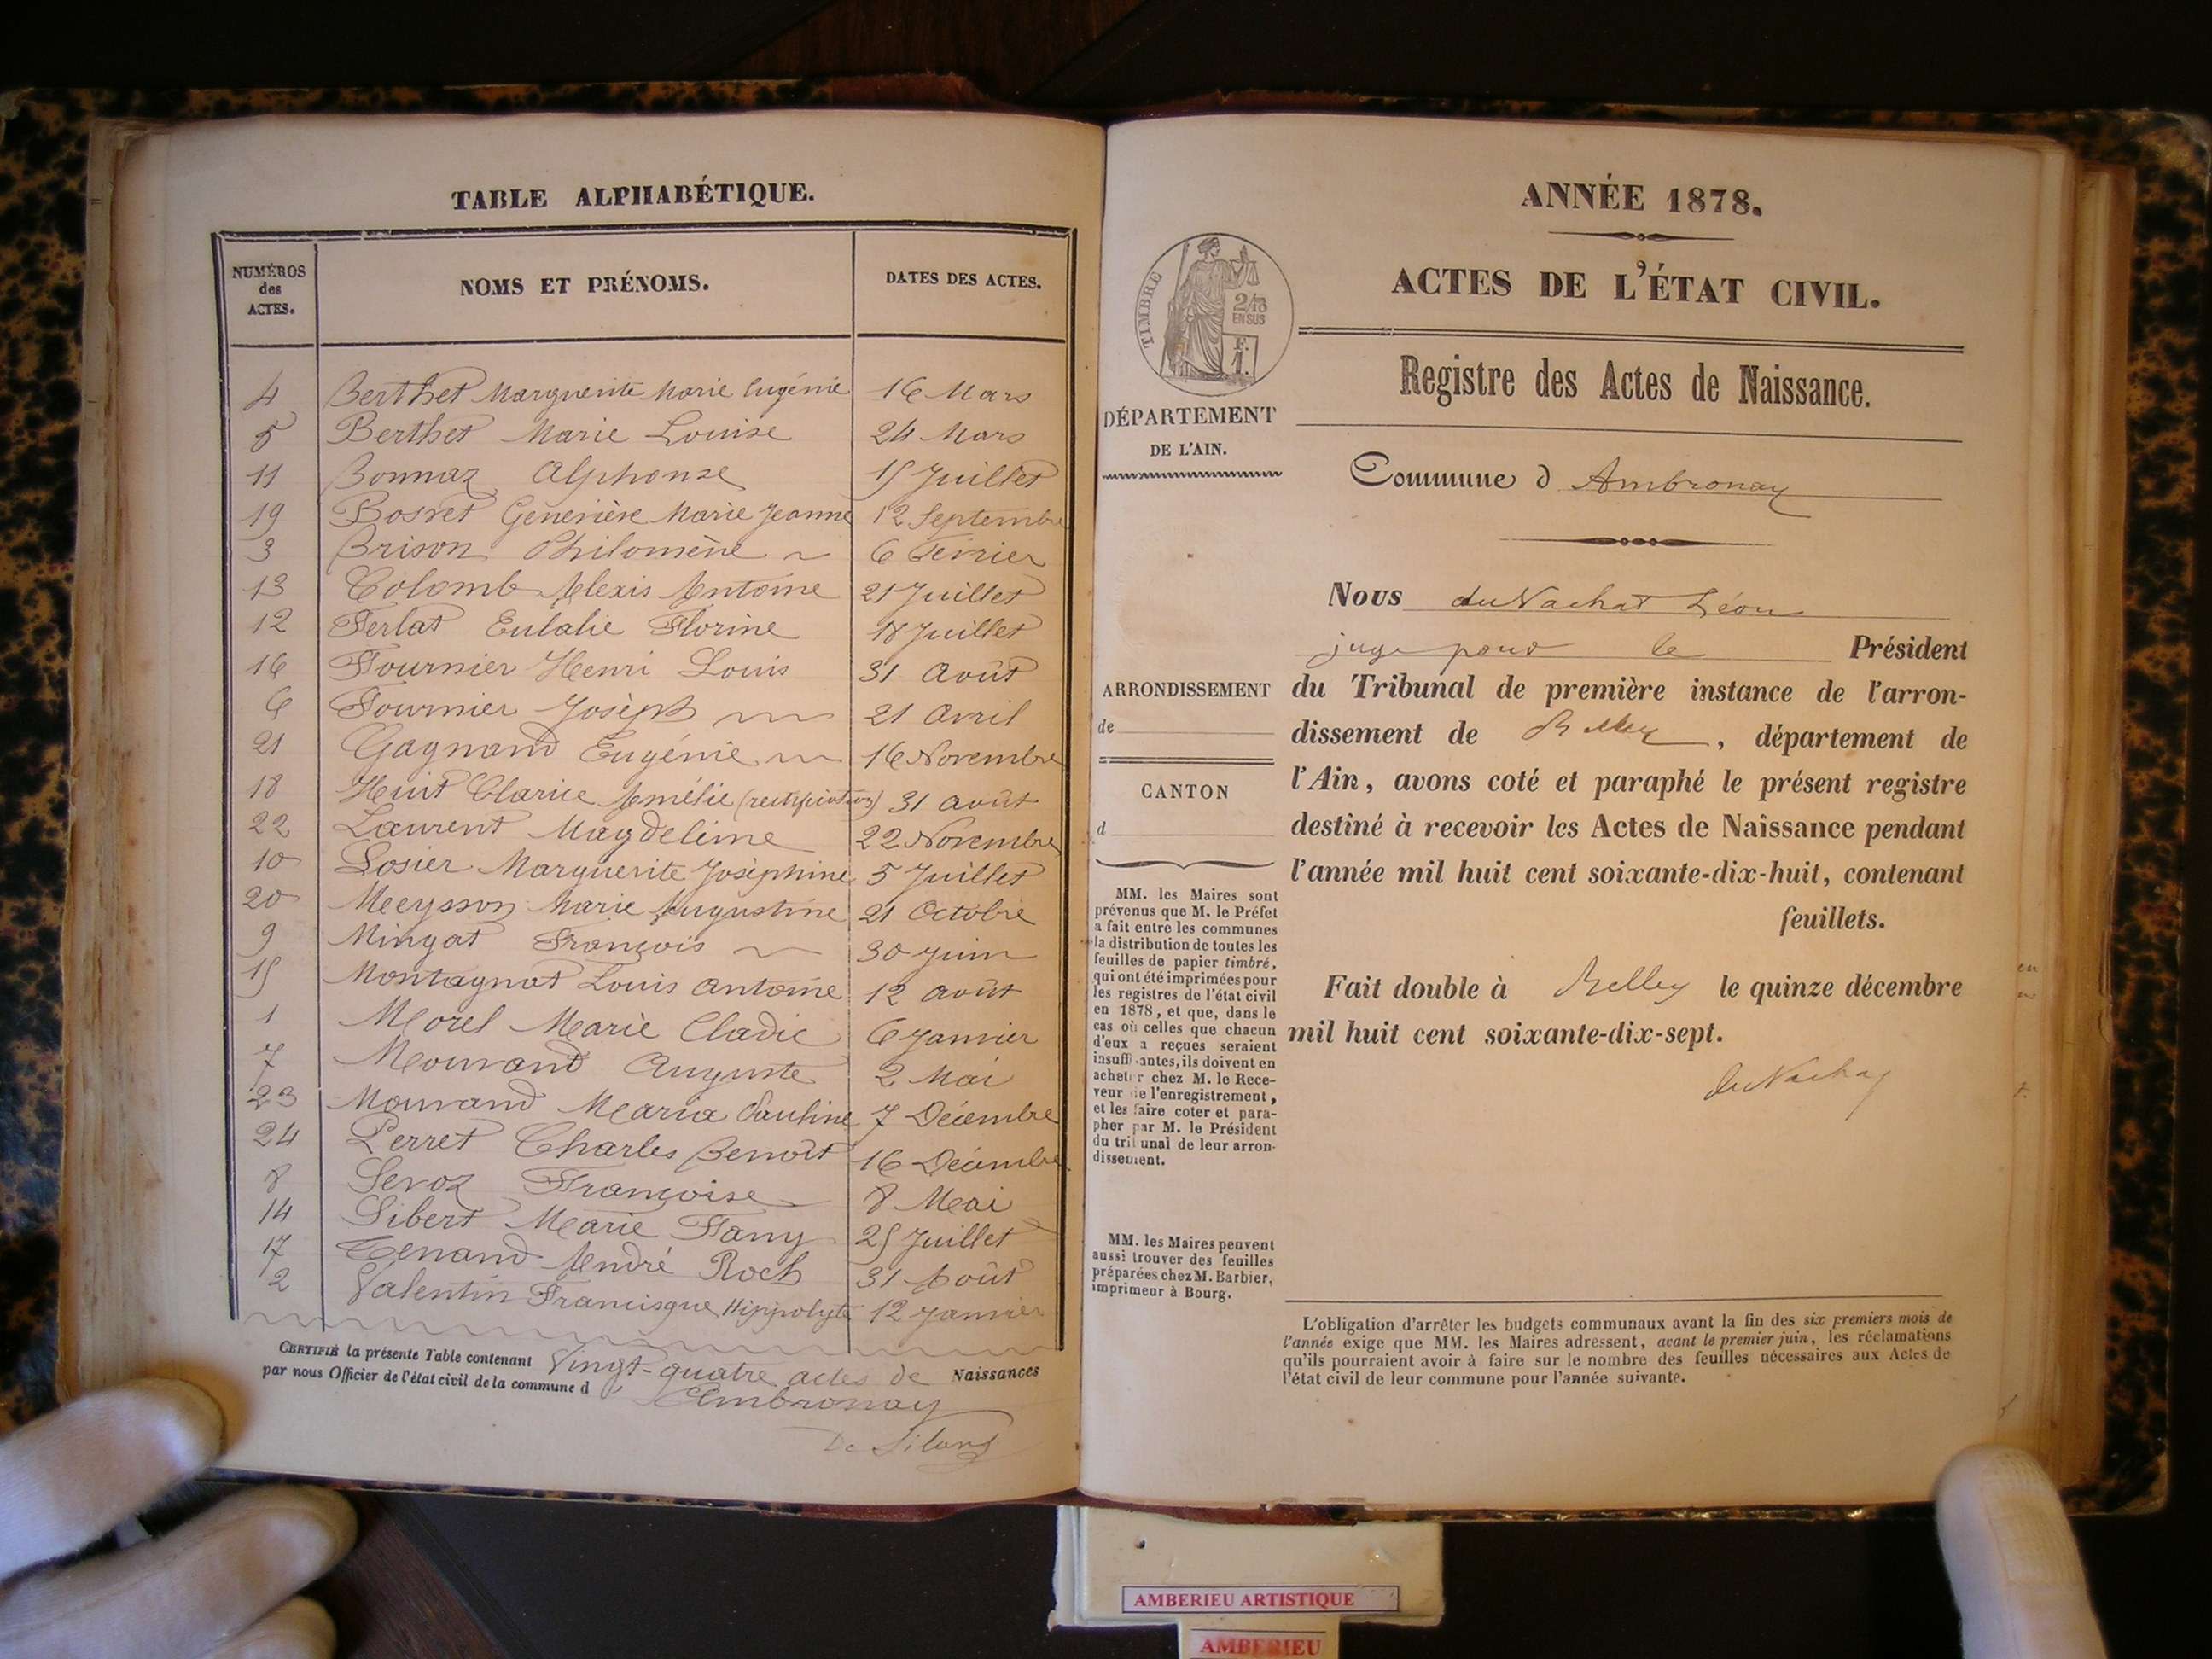 TABLE ALPHABÉTIQUE.
NUMÉROS des ACTES. NOMS ET PRÉNOMS. DATES DES ACTES.
4 Berthet Marguerite Marie Eugénie 16 Mars
5 Berthet Marie Louise 24 Mars
11 Bonnaz Alphonse 15 Juillet
19 Bosset Geneviève Marie Jeanne 12 Septembre
3 Brison Philomène 6 Février
13 Colomb Alexis Antoine 21 Juillet
12 Ferlat Eulalie Florine 18 Juillet
16 Fournier Henri Louis 31 Août
6 Fournier Josèph 21 Avril
21 Gagnand Eugénie 16 Novembre
18 Huit Clarice Amélie (rectification) 31 août
22 Laurent Magdeleine 22 Novembre
10 Losier Marguerite Josèphine 5 Juillet
20 Meeysson Marie Augustine 21 Octobre
9 Mingat François 30 Juin
15 Montagnat Louis Antoine 12 août
1 Morel Marie Cladie 6 Janvier
7 Mourand Auguste 2 Mai
23 Mourand Maria Pauline 7 Décembre
24 Perret Charles Benoît 16 Décembre
8 Servoz Françoise 8 Mai
14 Sibert Marie Fany 25 Juillet
17 Tenand André Roch 31 Août
2 Valentin Francisque Hippolyte 12 Janvier
CERTIFIÉ la présente Table contenant Vingt-quatre actes de Naissances
par nous Officier de l'état civil de la commune d Ambronay
De Silans
ANNÉE 1878.
ACTES DE L'ÉTAT CIVIL.
TIMBRE
2/10
EN SUS
F.
1.
Registre des Actes de Naissance.
DÉPARTEMENT
DE L'AIN.
Commune d Ambronay
Nous du Vachat Léon
juge pour le Président
du Tribunal de première instance de l'arron-
dissement de Belley, département de
l'Ain, avons coté et paraphé le présent registre
destiné à recevoir les Actes de Naissance pendant
l'année mil huit cent soixante-dix-huit, contenant
feuillets.
Fait double à Belley le quinze décembre
mil huit cent soixante-dix-sept.
du Vachat
ARRONDISSEMENT
de
CANTON
d
MM. les Maires sont
prévenus que M. le Préfet
a fait entre les communes
la distribution de toutes les
feuilles de papier timbré,
qui ont été imprimées pour
les registres de l'état civil
en 1878, et que, dans le
cas où celles que chacun
d'eux a reçues seraient
insuffisantes, ils doivent en
acheter chez M. le Rece-
veur de l'enregistrement,
et les faire coter et para-
pher par M. le Président
du tribunal de leur arron-
dissement.
MM. les Maires peuvent
aussi trouver des feuilles
préparées chez M. Barbier,
imprimeur à Bourg.
L'obligation d'arrêter les budgets communaux avant la fin des six premiers mois de
l'année exige que MM. les Maires adressent, avant le premier juin, les réclamations
qu'ils pourraient avoir à faire sur le nombre des feuilles nécessaires aux Actes de
l'état civil de leur commune pour l'année suivante.
AMBERIEU ARTISTIQUE
AMBERIEU